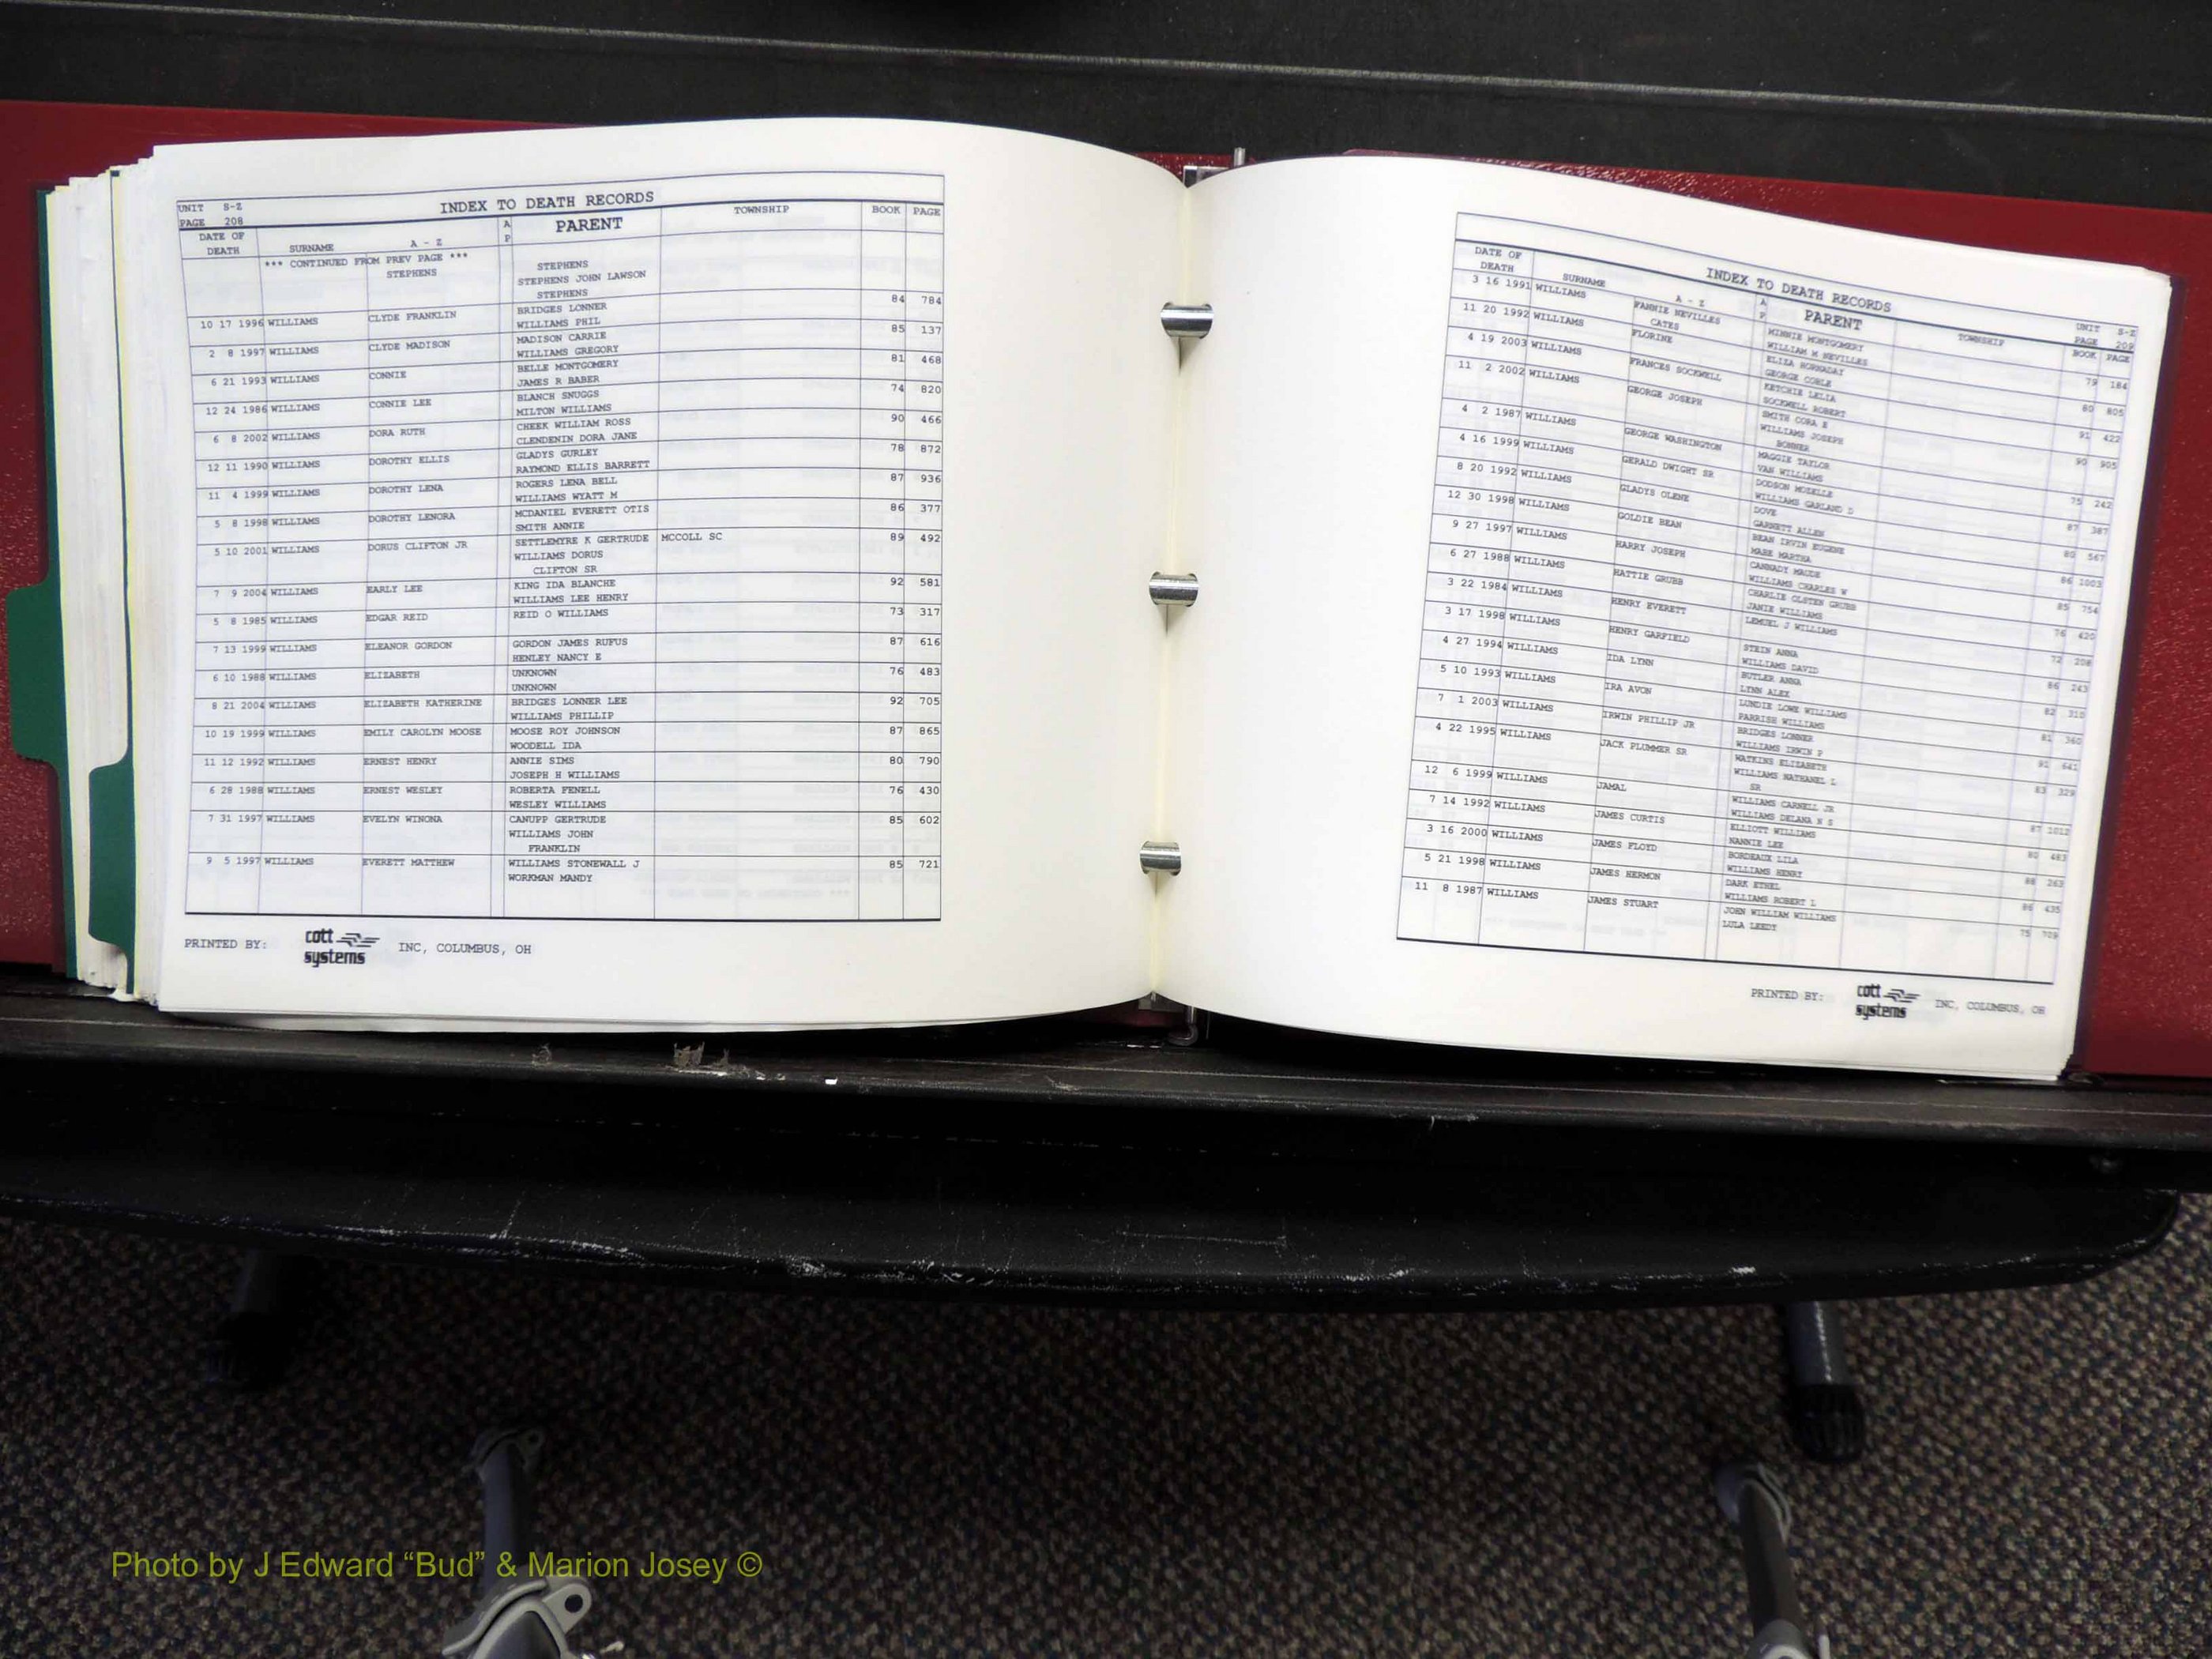 UNIT S-Z
PAGE 208
INDEX TO DEATH RECORDS
DATE OF DEATH SURNAME A - Z A P PARENT TOWNSHIP BOOK PAGE
*** CONTINUED FROM PREV PAGE ***
STEPHENS STEPHENS
STEPHENS JOHN LAWSON
STEPHENS
10 17 1996 WILLIAMS CLYDE FRANKLIN BRIDGES LONNER 84 784
WILLIAMS PHIL
2 8 1997 WILLIAMS CLYDE MADISON MADISON CARRIE 85 137
WILLIAMS GREGORY
6 21 1993 WILLIAMS CONNIE BELLE MONTGOMERY 81 468
JAMES R BABER
12 24 1986 WILLIAMS CONNIE LEE BLANCH SNUGGS 74 820
MILTON WILLIAMS
6 8 2002 WILLIAMS DORA RUTH CHEEK WILLIAM ROSS 90 466
CLENDENIN DORA JANE
12 11 1990 WILLIAMS DOROTHY ELLIS GLADYS GURLEY 78 872
RAYMOND ELLIS BARRETT
11 4 1999 WILLIAMS DOROTHY LENA ROGERS LENA BELL 87 936
WILLIAMS WYATT M
5 8 1998 WILLIAMS DOROTHY LENORA MCDANIEL EVERETT OTIS 86 377
SMITH ANNIE
5 10 2001 WILLIAMS DORUS CLIFTON JR SETTLEMYRE K GERTRUDE MCCOLL SC 89 492
WILLIAMS DORUS
CLIFTON SR
7 9 2004 WILLIAMS EARLY LEE KING IDA BLANCHE 92 581
WILLIAMS LEE HENRY
5 8 1985 WILLIAMS EDGAR REID REID O WILLIAMS 73 317
7 13 1999 WILLIAMS ELEANOR GORDON GORDON JAMES RUFUS 87 616
HENLEY NANCY E
6 10 1988 WILLIAMS ELIZABETH UNKNOWN 76 483
UNKNOWN
8 21 2004 WILLIAMS ELIZABETH KATHERINE BRIDGES LONNER LEE 92 705
WILLIAMS PHILLIP
10 19 1999 WILLIAMS EMILY CAROLYN MOOSE MOOSE ROY JOHNSON 87 865
WOODELL IDA
11 12 1992 WILLIAMS ERNEST HENRY ANNIE SIMS 80 790
JOSEPH H WILLIAMS
6 28 1988 WILLIAMS ERNEST WESLEY ROBERTA FENELL 76 430
WESLEY WILLIAMS
7 31 1997 WILLIAMS EVELYN WINONA CANUPP GERTRUDE 85 602
WILLIAMS JOHN
FRANKLIN
9 5 1997 WILLIAMS EVERETT MATTHEW WILLIAMS STONEWALL J 85 721
WORKMAN MANDY
PRINTED BY: cott systems INC, COLUMBUS, OH
INDEX TO DEATH RECORDS
UNIT S-Z
PAGE 209
DATE OF DEATH SURNAME A - Z A P PARENT TOWNSHIP BOOK PAGE
3 16 1991 WILLIAMS FANNIE NEVILLES MINNIE MONTGOMERY 79 184
CATES WILLIAM M NEVILLES
11 20 1992 WILLIAMS FLORINE ELIZA HORNADAY 80 805
GEORGE COBLE
4 19 2003 WILLIAMS FRANCES SOCKWELL KETCHIE LELIA 91 422
SOCKWELL ROBERT
11 2 2002 WILLIAMS GEORGE JOSEPH SMITH CORA E 90 905
WILLIAMS JOSEPH
BONNER
4 2 1987 WILLIAMS GEORGE WASHINGTON MAGGIE TAYLOR 75 242
VAN WILLIAMS
4 16 1999 WILLIAMS GERALD DWIGHT SR DODSON MOZELLE 87 387
WILLIAMS GARLAND D
8 20 1992 WILLIAMS GLADYS OLENE DOVE 80 567
GARNETT ALLEN
12 30 1998 WILLIAMS GOLDIE BEAN BEAN IRVIN EUGENE 86 1003
MABE MARTHA
9 27 1997 WILLIAMS HARRY JOSEPH CANNADY MAUDE 85 754
WILLIAMS CHARLES W
6 27 1988 WILLIAMS HATTIE GRUBB CHARLIE OLSTEN GRUBB 76 420
JANIE WILLIAMS
3 22 1984 WILLIAMS HENRY EVERETT LEMUEL J WILLIAMS 72 208
3 17 1998 WILLIAMS HENRY GARFIELD STEIN ANNA 86 243
WILLIAMS DAVID
4 27 1994 WILLIAMS IDA LYNN BUTLER ANNA 82 310
LYNN ALEX
5 10 1993 WILLIAMS IRA AVON LUNDIE LOWE WILLIAMS 81 360
PARRISH WILLIAMS
7 1 2003 WILLIAMS IRWIN PHILLIP JR BRIDGES LONNER 91 641
WILLIAMS IRWIN P
4 22 1995 WILLIAMS JACK PLUMMER SR WATKINS ELIZABETH 83 329
WILLIAMS NATHANEL L
SR
12 6 1999 WILLIAMS JAMAL WILLIAMS CARNELL JR 87 1012
WILLIAMS DELANA N S
7 14 1992 WILLIAMS JAMES CURTIS ELLIOTT WILLIAMS 80 483
NANNIE LEE
3 16 2000 WILLIAMS JAMES FLOYD BORDEAUX LILA 88 263
WILLIAMS HENRY
5 21 1998 WILLIAMS JAMES HERMON DARK ETHEL 86 435
WILLIAMS ROBERT L
11 8 1987 WILLIAMS JAMES STUART JOHN WILLIAM WILLIAMS 75 709
LULA LEEDY
PRINTED BY: cott systems INC, COLUMBUS, OH
Photo by J Edward “Bud” & Marion Josey ©